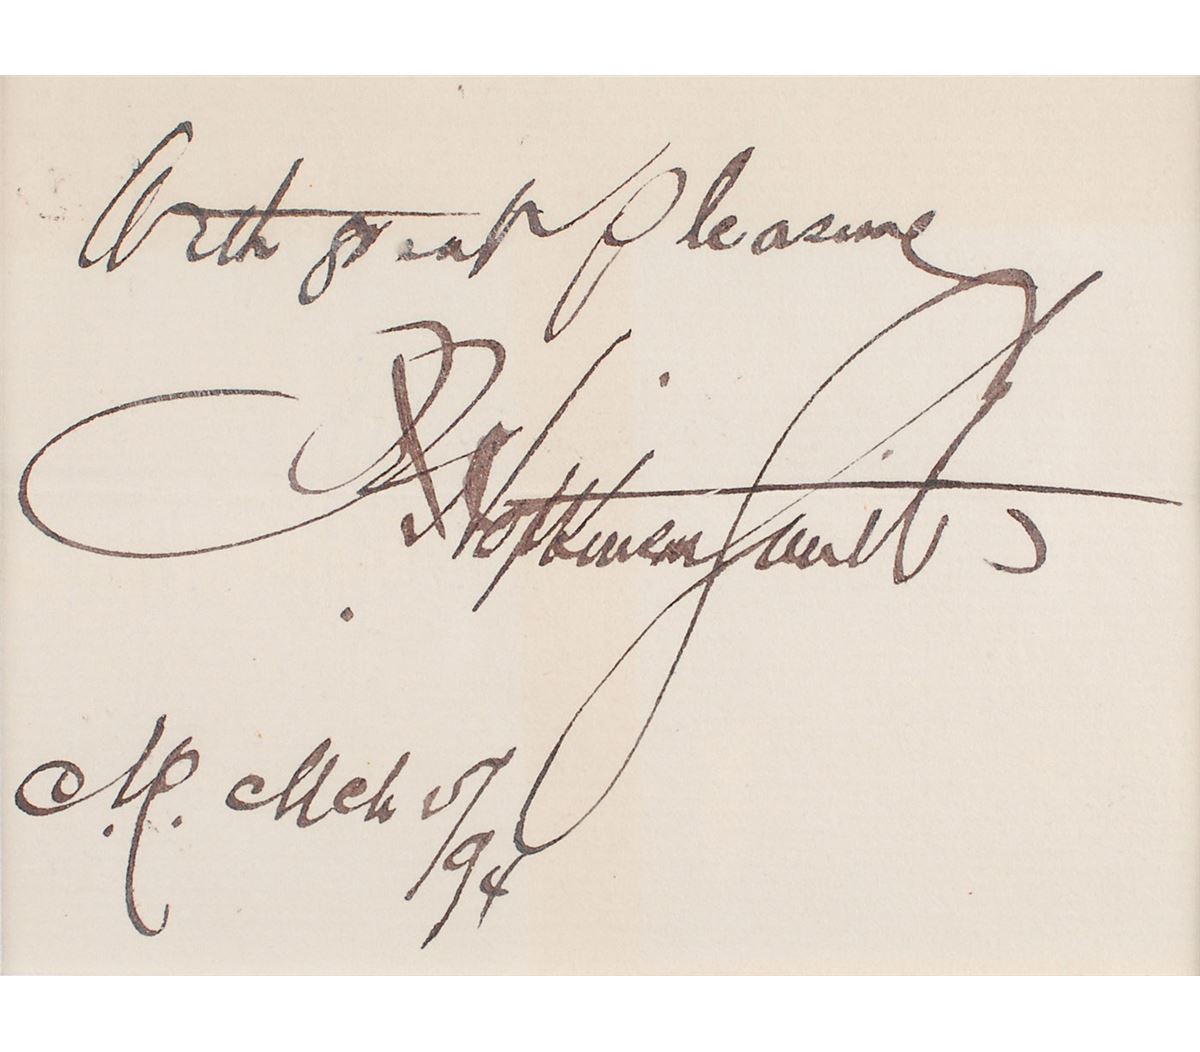 With great pleasure
F Hopkinson Smith
Mch
/94